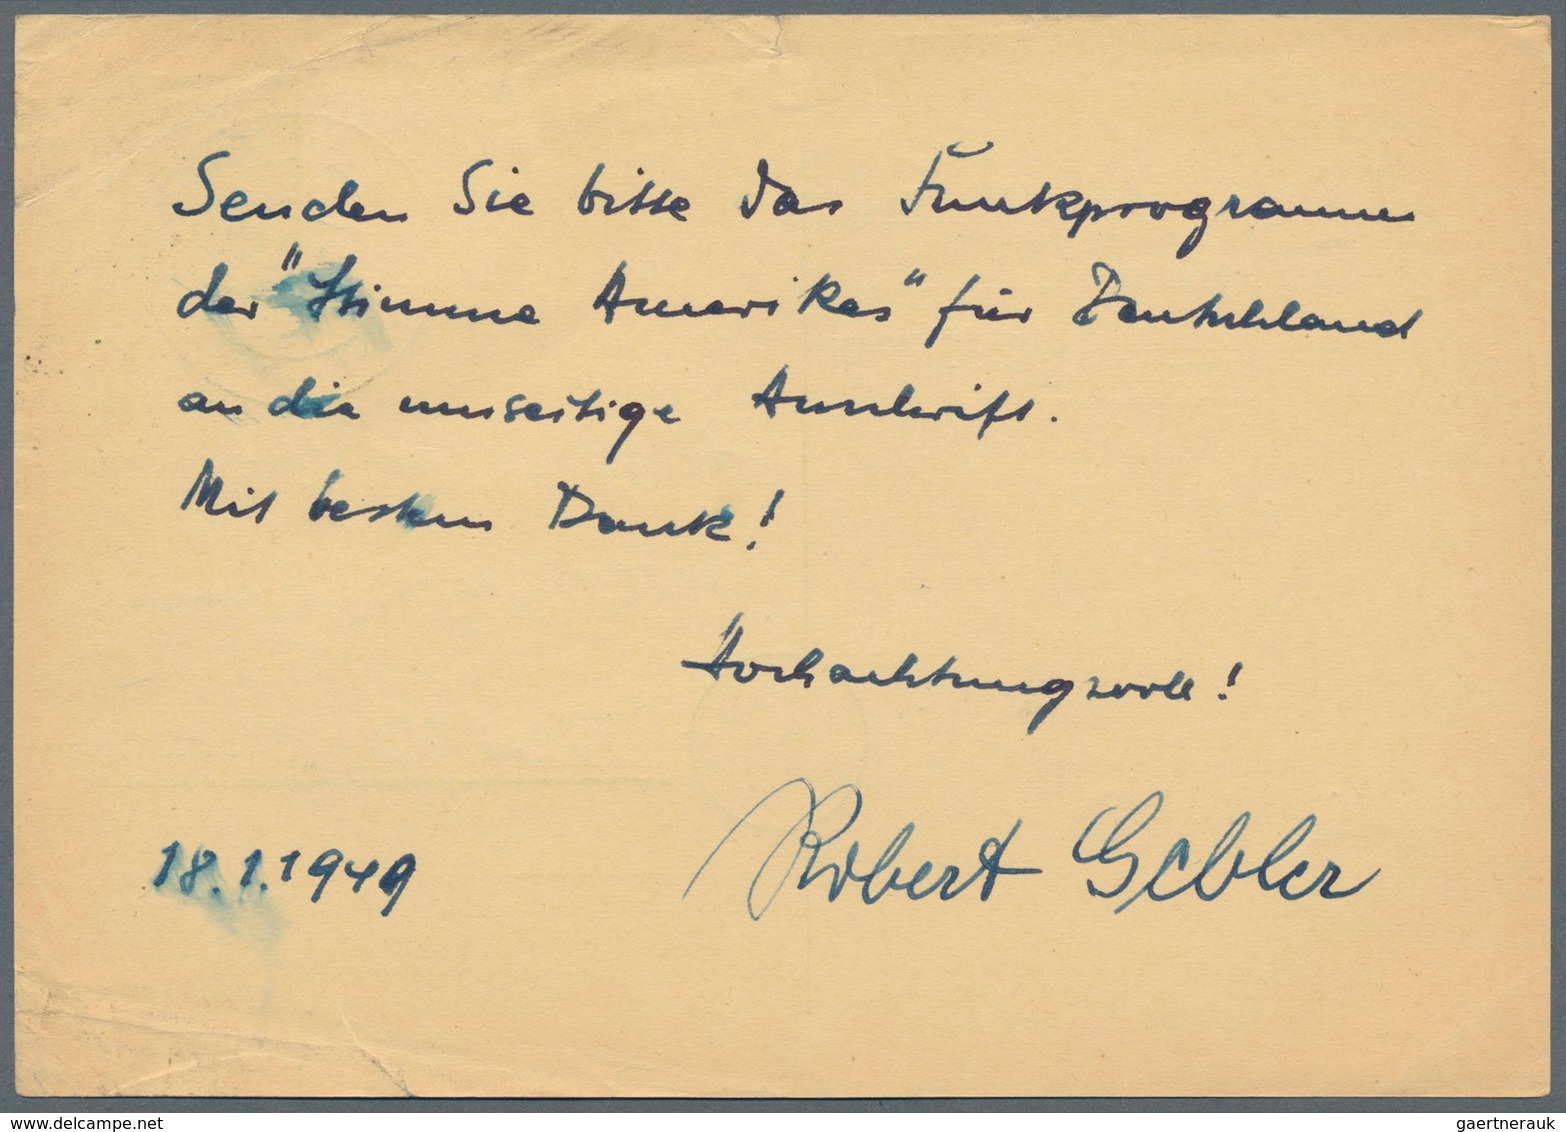 Senden Sie bitte das Funkprogramm
der "Stimme Amerikas" für Deutschland
an die umseitige Anschrift.
Mit bestem Dank!
Hochachtungsvoll!
18.1.1949
Robert Gebler
www.delcampe.net
gaertnerauk